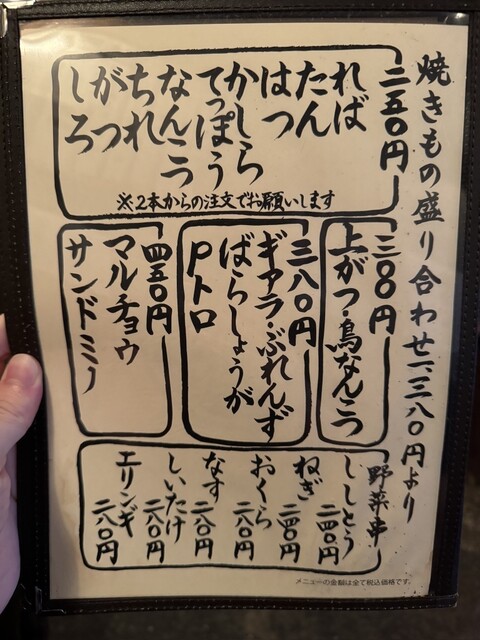 焼きもの盛り合わせ一、三八〇円より
二五〇円
れば
たん
はつ
かしら
てっぽう
なんこつ
ちれ
がつ
しろ
※2本からの注文でお願いします
三〇〇円
上がつ・鳥なんこつ
三八〇円
ギアラ・ぶれんず
ばらしょうが
Pトロ
四五〇円
マルチョウ
サンドミノ
野菜串
ししとう 二四〇円
ねぎ 二四〇円
おくら 二八〇円
なす 二八〇円
しいたけ 二八〇円
エリンギ 二八〇円
メニューの金額は全て税込価格です。